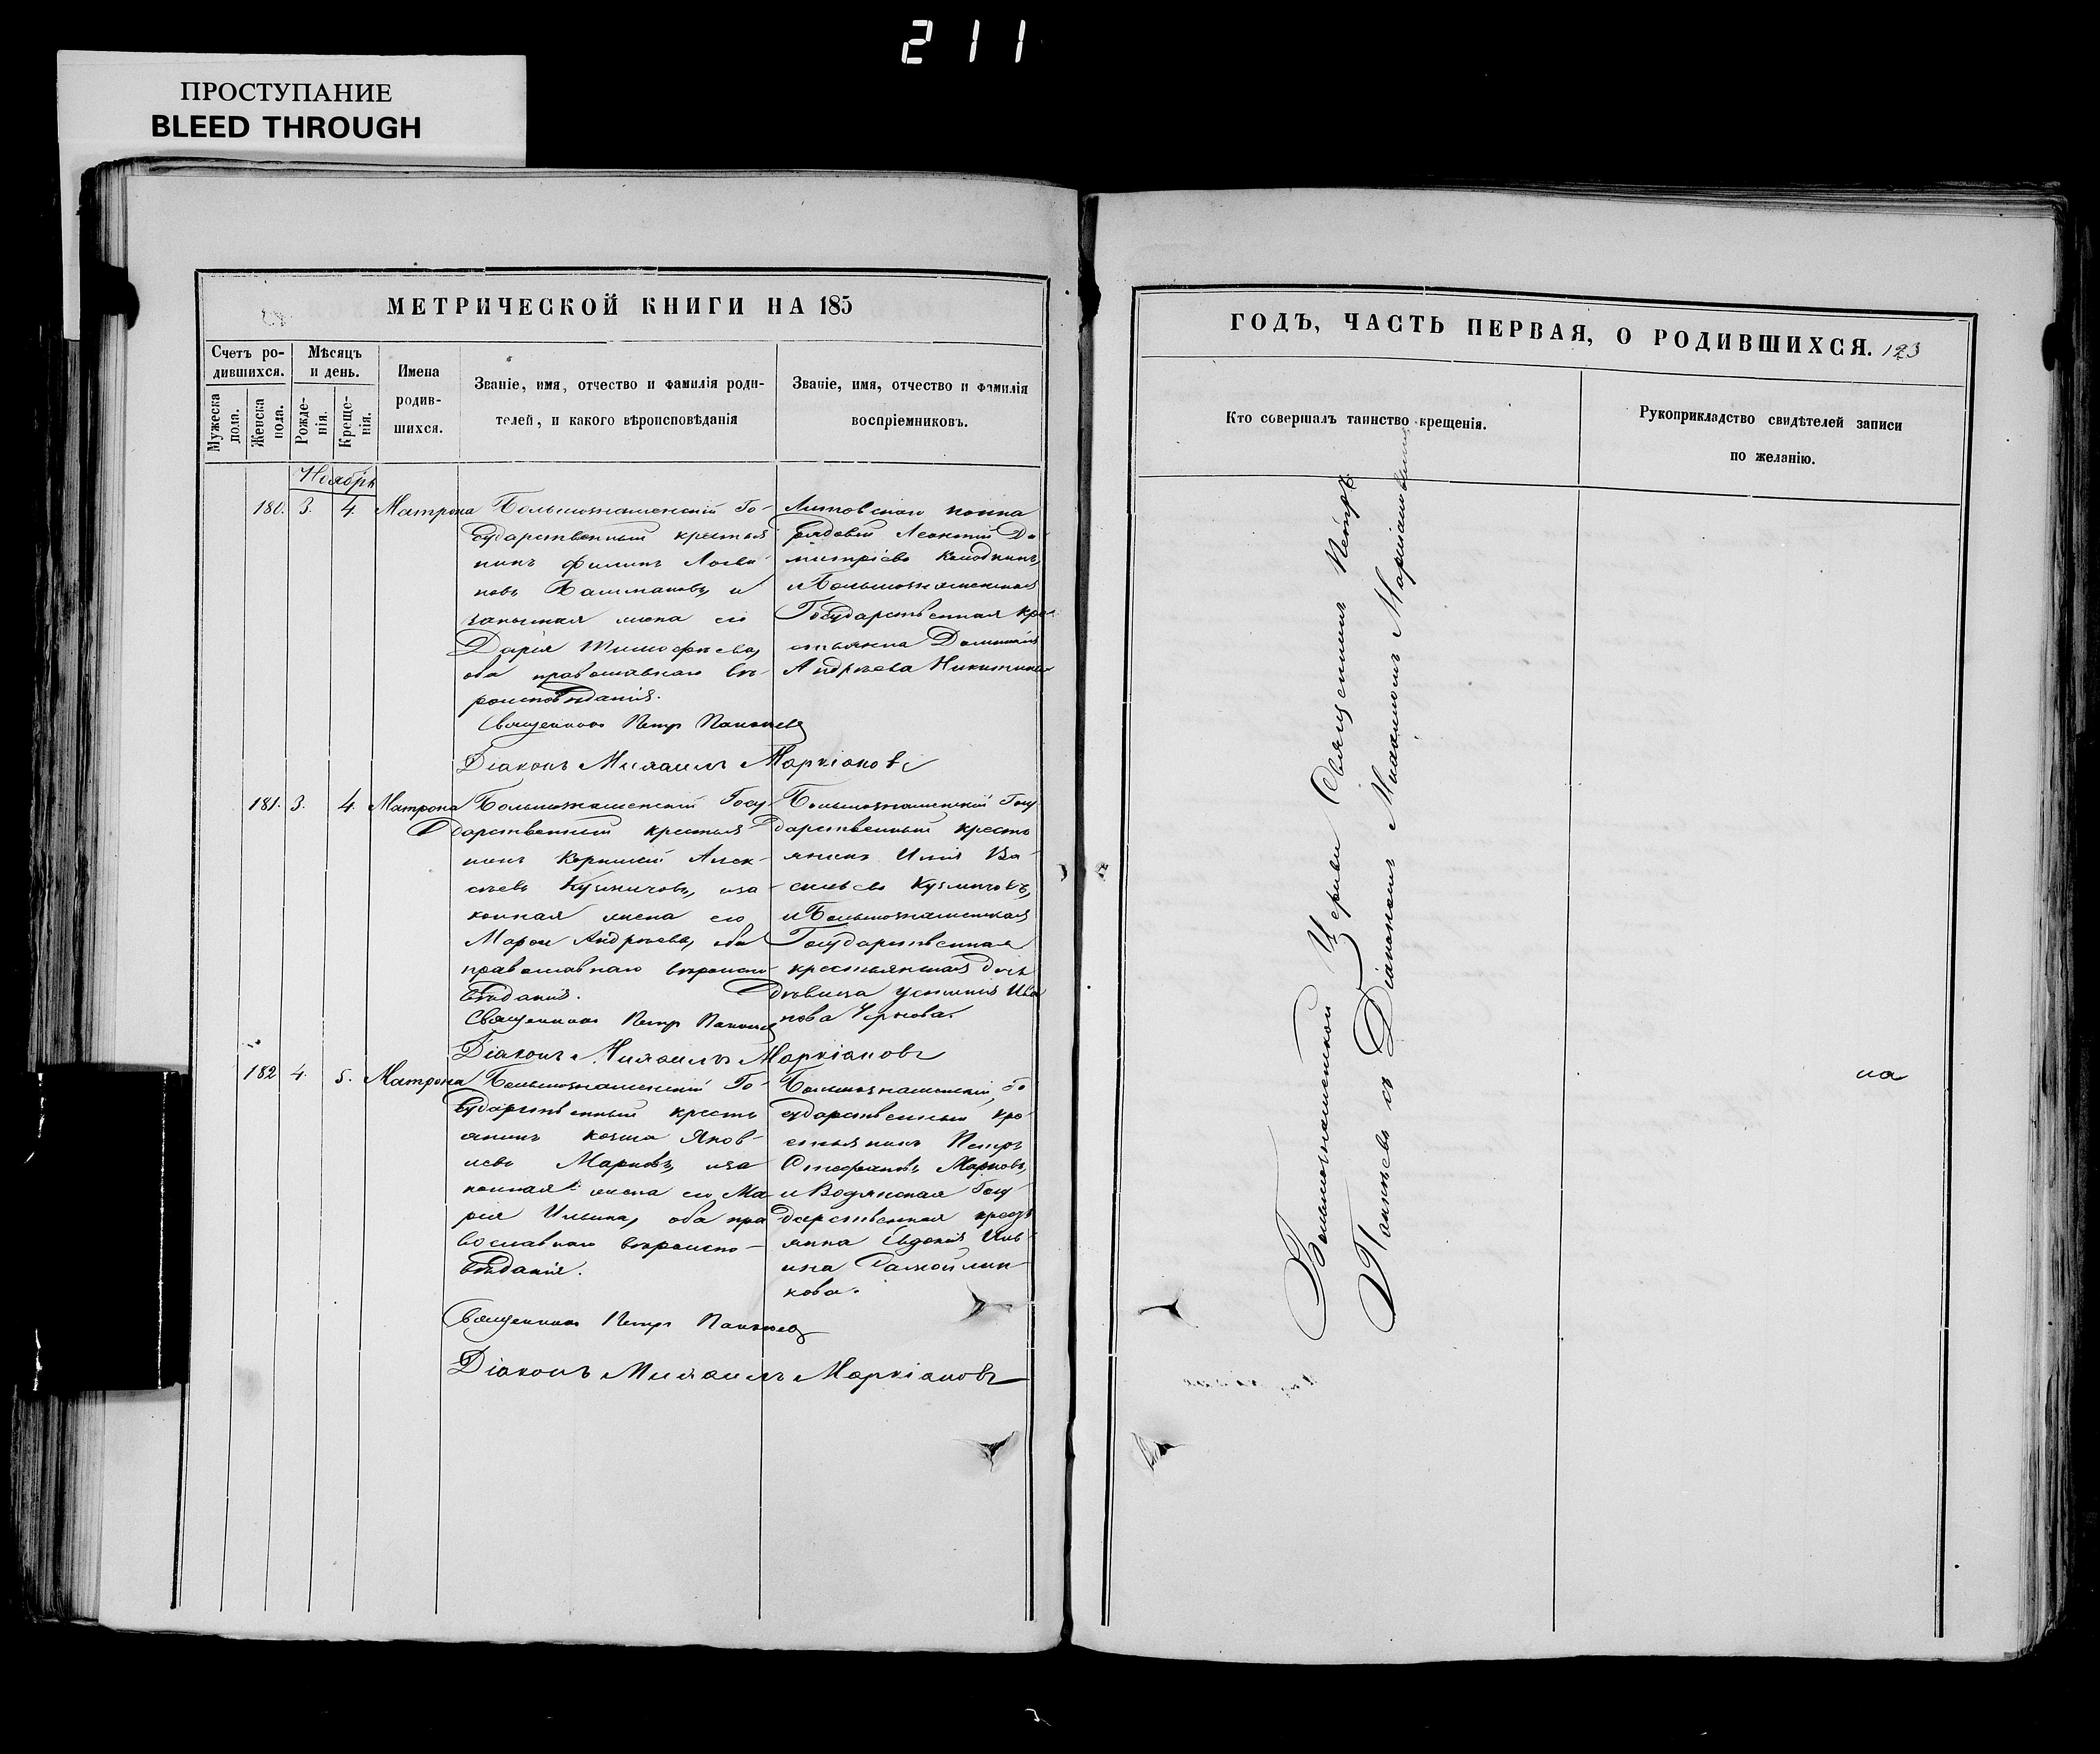 211
ПРОСТУПАНИЕ
BLEED THROUGH
МЕТРИЧЕСКОЙ КНИГИ НА 185
Счетъ ро-
дившихся.
Мужеска
пола.
Женска
пола.
Мѣсяцъ
и день.
Рожде-
нія.
Креще-
нія.
Имена
родив-
шихся.
Званіе, имя, отчество и фамилія роди-
телей, и какого вѣроисповѣданія
Званіе, имя, отчество и фамилія
воспріемниковъ.
Ноябрь
180. 3. 4. Матрона
Большознаменскій Го-
сударственный крестья
нинъ Филипъ Логви
новъ и
законная жена его
Дарія Тимофѣева,
оба православнаго вѣ-
роисповѣданія.
Священникъ Петр Панкѣев
Діаконъ Михаилъ Маркіановъ
Литовскаго полка
рядовый Леонтій Ди
митріевъ
и Большознаменская
Государственная кре
стьянка
Андрѣева Никитина
181. 3. 4. Матрона
Большознаменскій Госу-
дарственный крестья
нинъ Корнилій Алек-
сѣевъ Кузмичовъ, и за-
конная жена его
Марфа Андрѣева, оба
православнаго вѣроиспо-
вѣданія.
Священникъ Петр Панкѣев
Діаконъ Михаилъ Маркіановъ
Большознаменскій Госу
дарственный кресть
янинъ Илія Ва-
сильевъ Кузмичовъ,
и Большознаменская
Государственная
крестьянская дочь
дѣвица Устинія Ива
нова Чернова.
182 4. 5. Матрона
Большознаменскій Го-
сударственный кресть
янинъ Козма Яков-
левъ Марковъ, и за
конная жена его Ма-
рія Ильина, оба пра
вославнаго вѣроиспо-
вѣданія.
Священникъ Петр Панкѣев
Діаконъ Михаилъ Маркіановъ
Большознаменскій Го
сударственный кре-
стьянинъ Петръ
Стефановъ Марковъ,
и Водянская Госу-
дарственная кресть
янка Евдокія Иль-
ина
кова.
ГОДЪ, ЧАСТЬ ПЕРВАЯ, О РОДИВШИХСЯ. 123
Кто совершалъ таинство крещенія.
Рукоприкладство свидѣтелей записи
по желанію.
Большознаменской Церкви Священникъ Петръ
Панкѣевъ съ Діакономъ Михаиломъ Маркіановымъ
на